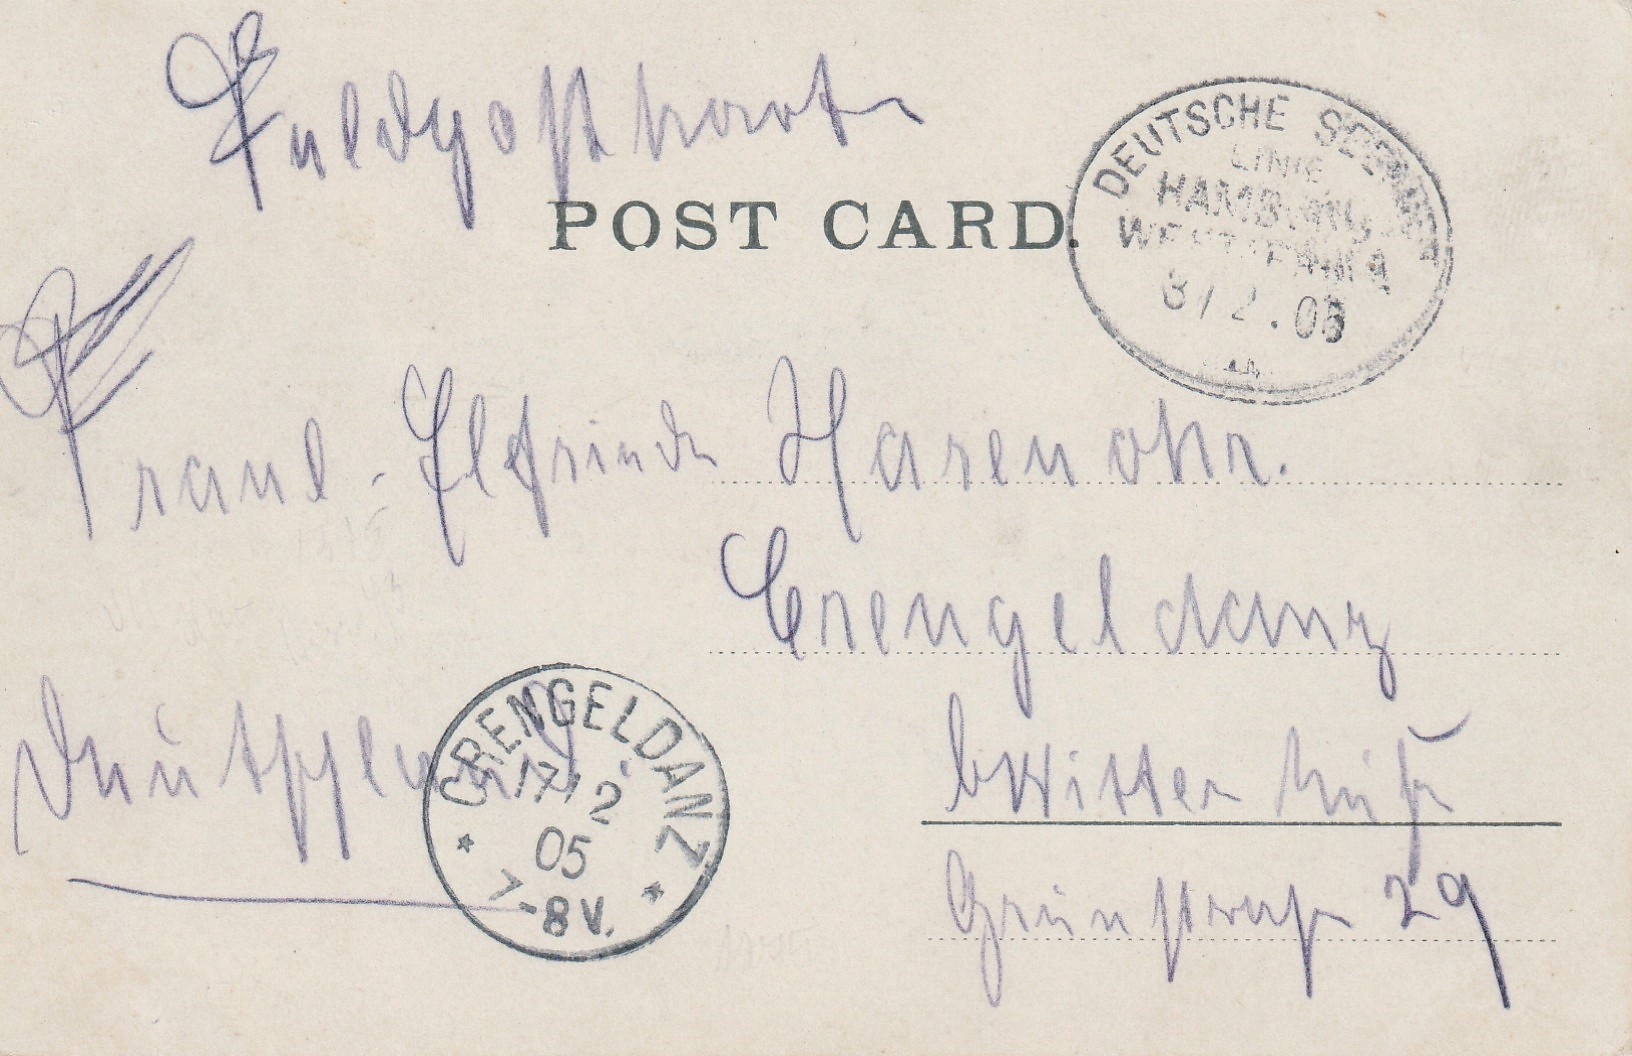 Feldpostkarte
POST CARD.
DEUTSCHE SEEPOST
LINIE
HAMBURG
WESTAFRIKA
Fräul. Elfriede Harenohr.
Crengeldanz
b/Witten Ruhr
Grünstraße 29
Deutschland.
CRENGELDANZ
17 12
05
7-8 V.